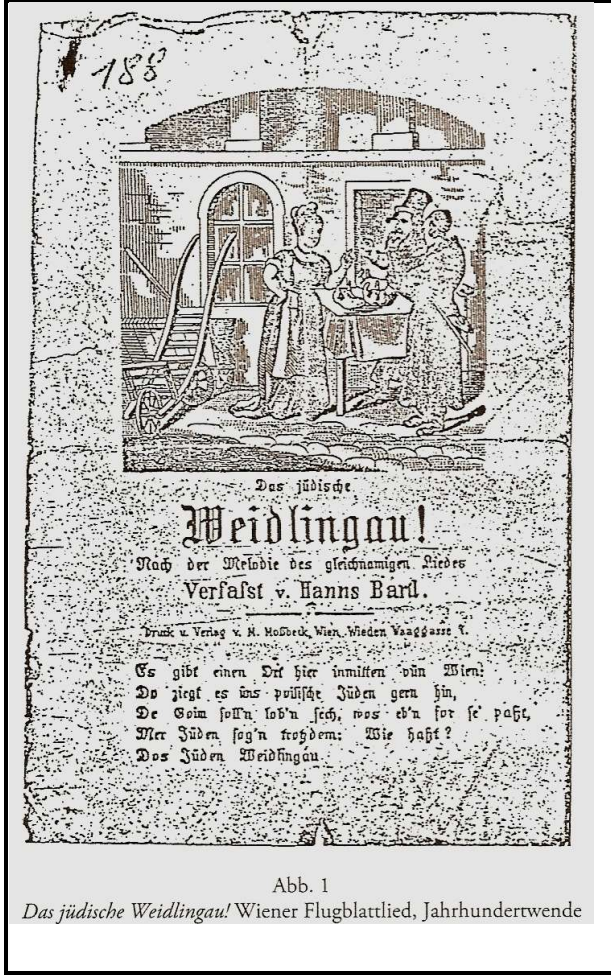 188
Das jüdische
Weidlingau!
Nach der Melodie des gleichnamigen Liedes
Verfaſst v. Hanns Bartl.
Druck u. Verlag v. M. Moßbeck, Wien, Wieden Waaggasse 7.
Es gibt einen Ort hier inmitten vün Wien:
Do ziegt es üns poilische Jüden gern hin,
De Goim soll'n lob'n sech, wos eb'n for se' paßt,
Mer Jüden sog'n trotzdem: Wie haßt?
Dos Jüden Weidlingau
Abb. 1
Das jüdische Weidlingau! Wiener Flugblattlied, Jahrhundertwende